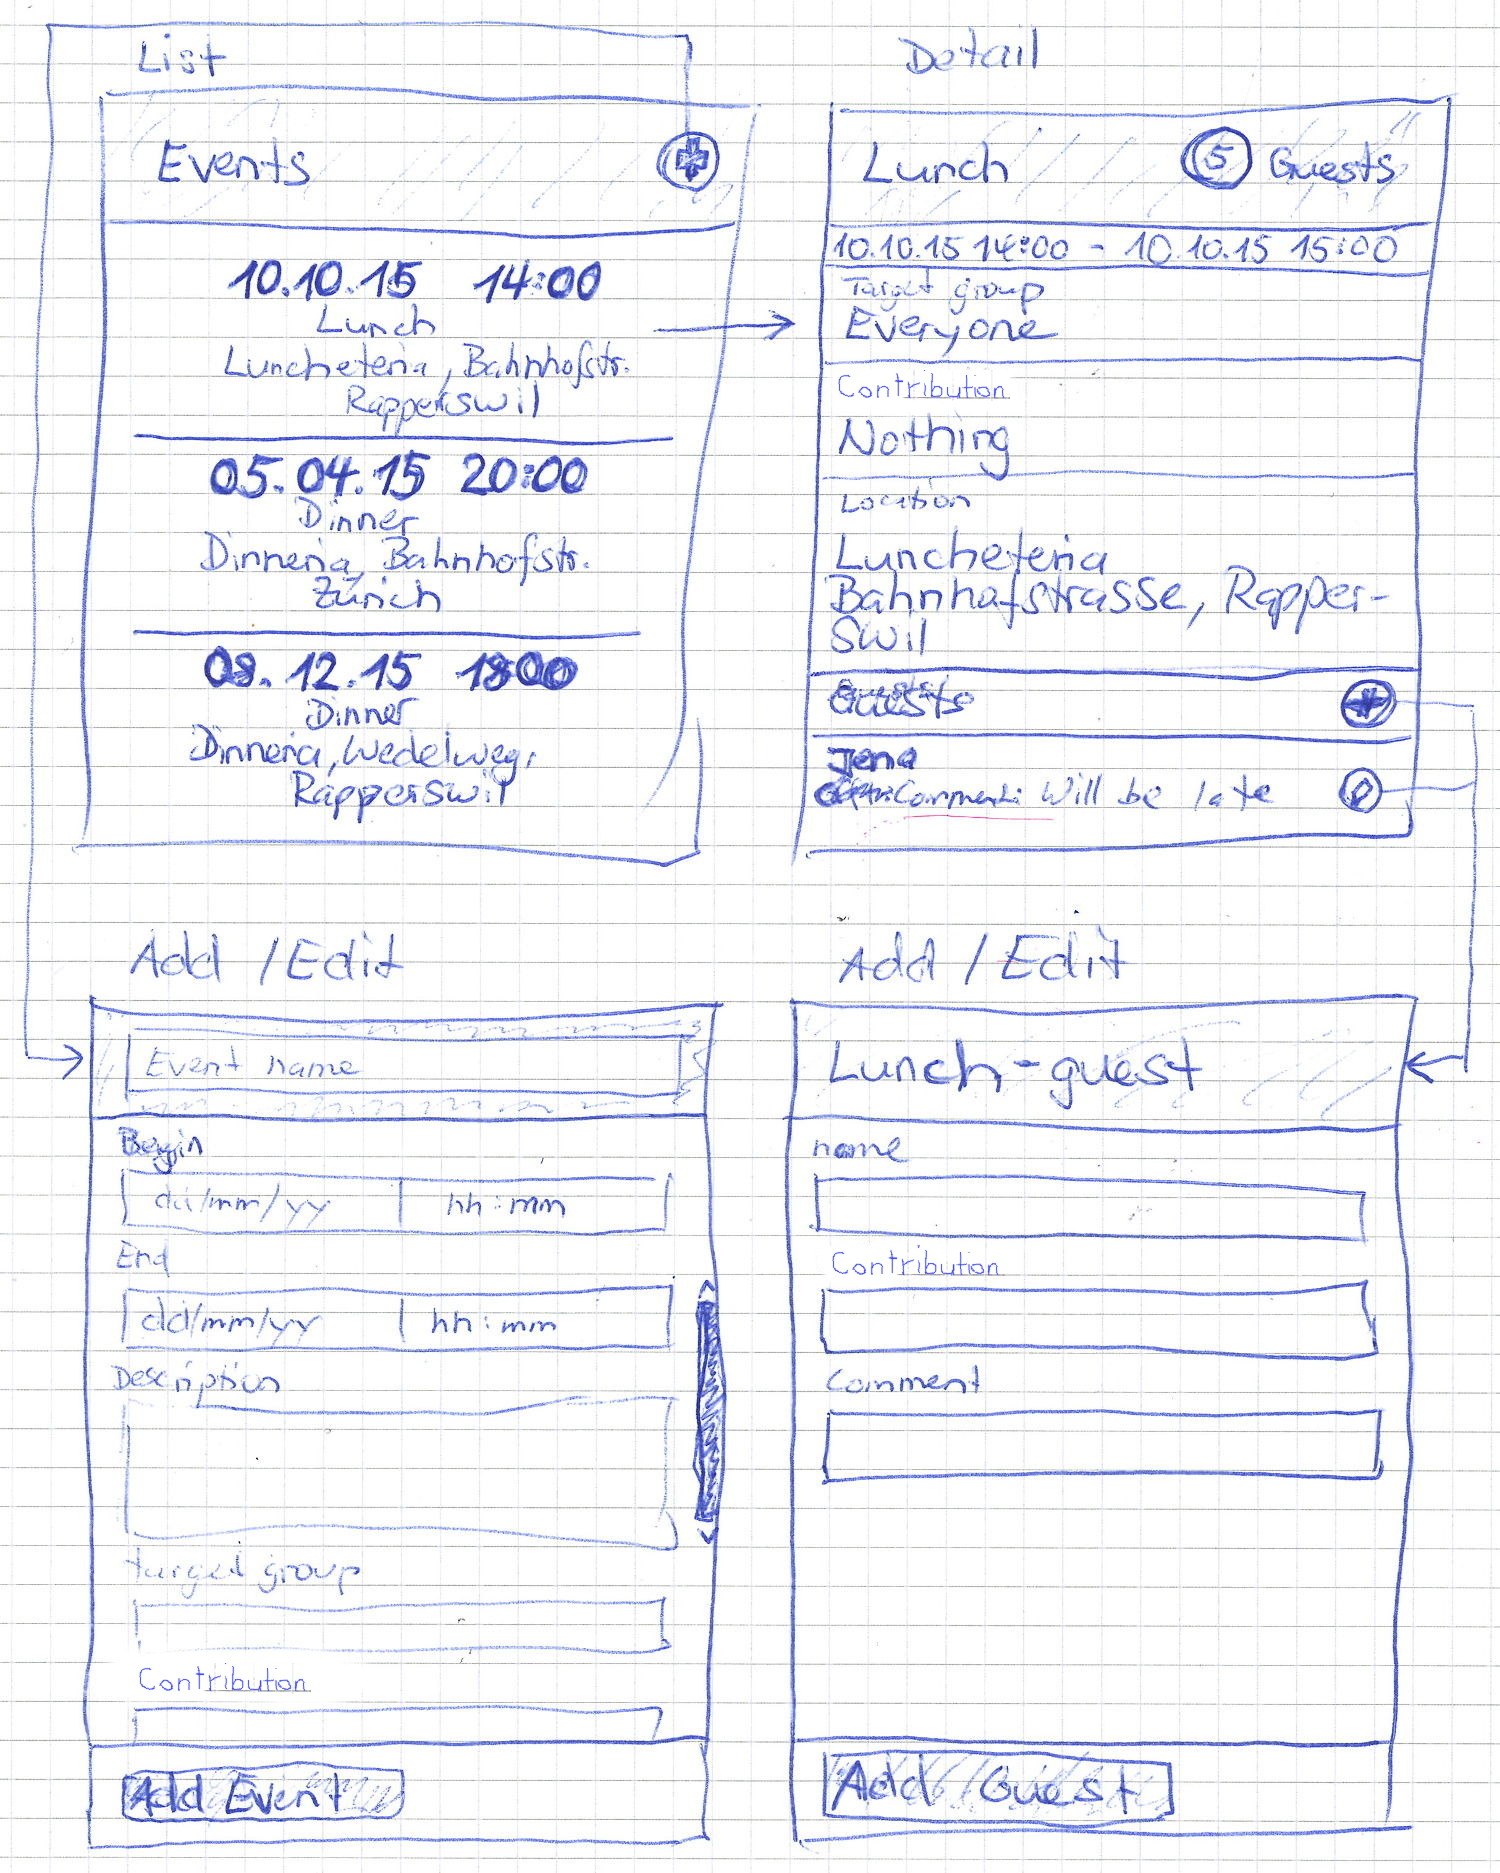 List
Events
10.10.15 14:00
Lunch
Luncheteria, Bahnhofstr.
Rapperswil
05.04.15 20:00
Dinner
Dinneria, Bahnhofstr.
Zürich
12.15
Dinner
Dinneria, Wedelweg,
Rapperswil
Detail
Lunch 5 Guests
10.10.15 14:00 - 10.10.15 15:00
Target group
Everyone
Contribution
Nothing
Location
Luncheteria
Bahnhofstrasse, Rapper-
swil
Guests
Jena
Comment: Will be late
Add / Edit
Event name
Begin
dd/mm/yy hh:mm
End
dd/mm/yy hh:mm
Description
target group
Contribution
Add Event
Add / Edit
Lunch-guest
name
Contribution
Comment
Add Guest